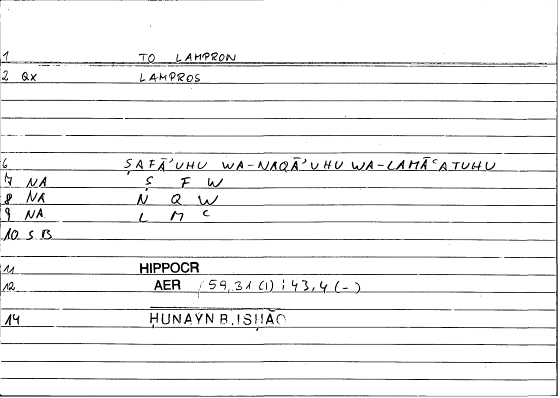 1 TO LAMPRON
2 QX LAMPROS
6 ṢAFĀʾUHU WA-NAQĀʾUHU WA-LAMĀʿATUHU
7 NA Ṣ F W
8 NA N Q W
9 NA L M ʿ
10 S B
11 HIPPOCR
12 AER (59,31 (1) ; 43,4 (-)
14 ḤUNAYN B. ISḤĀQ